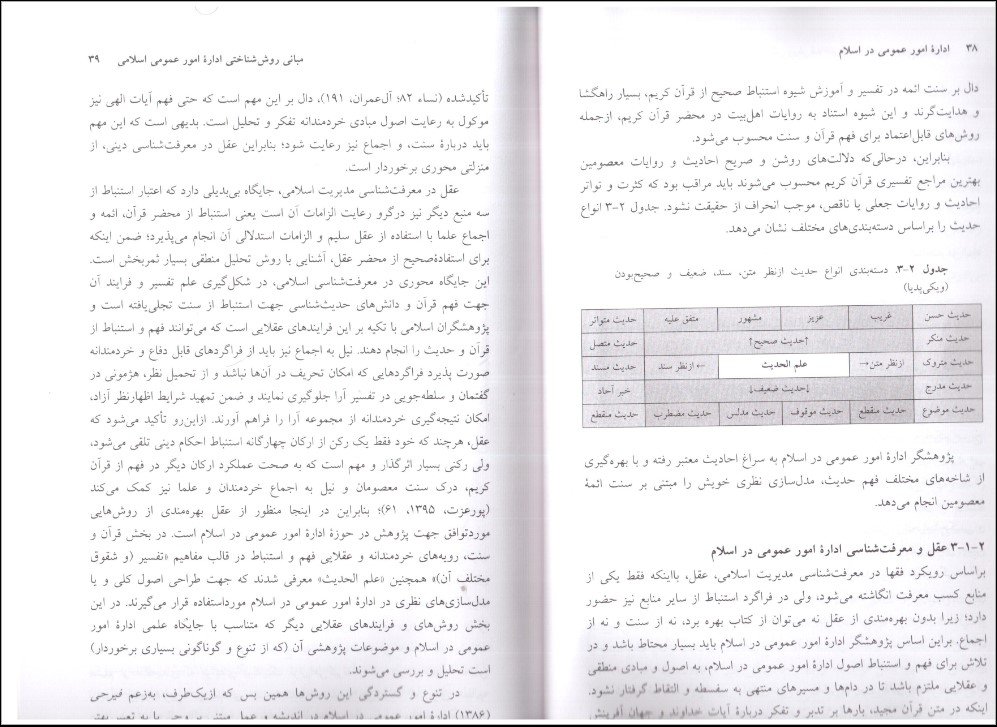 ۳۸ ادارهٔ امور عمومی در اسلام
دال بر سنت ائمه در تفسیر و آموزش شیوه استنباط صحیح از قرآن کریم، بسیار راهگشا
و هدایت‌گرند و این شیوه استناد به روایات اهل‌بیت در محضر قرآن کریم، ازجمله
روش‌های قابل‌اعتماد برای فهم قرآن و سنت محسوب می‌شود.
بنابراین، درحالی‌که دلالت‌های روشن و صریح احادیث و روایات معصومین
بهترین مراجع تفسیری قرآن کریم محسوب می‌شوند باید مراقب بود که کثرت و تواتر
احادیث و روایات جعلی یا ناقص، موجب انحراف از حقیقت نشود. جدول ۲-۳ انواع
حدیث را براساس دسته‌بندی‌های مختلف نشان می‌دهد.
جدول ۲-۳. دسته‌بندی انواع حدیث ازنظر متن، سند، ضعیف و صحیح‌بودن
(ویکی‌پدیا)
حدیث حسن غریب عزیز مشهور متفق علیه حدیث متواتر
حدیث منکر ↑حدیث صحیح↑ حدیث متصل
حدیث متروک ازنظر متن→ علم الحدیث ← ازنظر سند حدیث مسند
حدیث مدرج ↓حدیث ضعیف↓ خبر آحاد
حدیث موضوع حدیث منقطع حدیث موقوف حدیث مدلس حدیث مضطرب حدیث منقطع
پژوهشگر ادارهٔ امور عمومی در اسلام به سراغ احادیث معتبر رفته و با بهره‌گیری
از شاخه‌های مختلف فهم حدیث، مدل‌سازی نظری خویش را مبتنی بر سنت ائمهٔ
معصومین انجام می‌دهد.
۳-۱-۲ عقل و معرفت‌شناسی ادارهٔ امور عمومی در اسلام
براساس رویکرد فقها در معرفت‌شناسی مدیریت اسلامی، عقل، بااینکه فقط یکی از
منابع کسب معرفت انگاشته می‌شود، ولی در فراگرد استنباط از سایر منابع نیز حضور
دارد؛ زیرا بدون بهره‌مندی از عقل نه می‌توان از کتاب بهره برد، نه از سنت و نه از
اجماع. براین اساس پژوهشگر ادارهٔ امور عمومی در اسلام باید بسیار محتاط باشد و در
تلاش برای فهم و استنباط اصول ادارهٔ امور عمومی در اسلام، به اصول و مبادی منطقی
و عقلایی ملتزم باشد تا در دام‌ها و مسیرهای منتهی به سفسطه و التقاط گرفتار نشود.
اینکه در متن قرآن مجید، بارها بر تدبر و تفکر دربارهٔ آیات خداوند و جهان آفرینش
مبانی روش‌شناختی ادارهٔ امور عمومی اسلامی ۳۹
تأکیدشده (نساء ۸۲؛ آل‌عمران، ۱۹۱)، دال بر این مهم است که حتی فهم آیات الهی نیز
موکول به رعایت اصول مبادی خردمندانه تفکر و تحلیل است. بدیهی است که این مهم
باید دربارهٔ سنت، و اجماع نیز رعایت شود؛ بنابراین عقل در معرفت‌شناسی دینی، از
منزلتی محوری برخوردار است.
عقل در معرفت‌شناسی مدیریت اسلامی، جایگاه بی‌بدیلی دارد که اعتبار استنباط از
سه منبع دیگر نیز درگرو رعایت الزامات آن است یعنی استنباط از محضر قرآن، ائمه و
اجماع علما با استفاده از عقل سلیم و الزامات استدلالی آن انجام می‌پذیرد؛ ضمن اینکه
برای استفادهٔ‌صحیح از محضر عقل، آشنایی با روش تحلیل منطقی بسیار ثمربخش است.
این جایگاه محوری در معرفت‌شناسی اسلامی، در شکل‌گیری علم تفسیر و فرایند آن
جهت فهم قرآن و دانش‌های حدیث‌شناسی جهت استنباط از سنت تجلی‌یافته است و
پژوهشگران اسلامی با تکیه بر این فرایندهای عقلایی است که می‌توانند فهم و استنباط از
قرآن و حدیث را انجام دهند. نیل به اجماع نیز باید از فراگردهای قابل دفاع و خردمندانه
صورت پذیرد فراگردهایی که امکان تحریف در آن‌ها نباشد و از تحمیل نظر، هژمونی در
گفتمان و سلطه‌جویی در تفسیر آرا جلوگیری نمایند و ضمن تمهید شرایط اظهارنظر آزاد،
امکان نتیجه‌گیری خردمندانه از مجموعه آرا را فراهم آورند. ازاین‌رو تأکید می‌شود که
عقل، هرچند که خود فقط یک رکن از ارکان چهارگانه استنباط احکام دینی تلقی می‌شود،
ولی رکنی بسیار اثرگذار و مهم است که به صحت عملکرد ارکان دیگر در فهم از قرآن
کریم، درک سنت معصومان و نیل به اجماع خردمندان و علما نیز کمک می‌کند
(پورعزت، ۱۳۹۵، ۶۱)؛ بنابراین در اینجا منظور از عقل بهره‌مندی از روش‌هایی
موردتوافق جهت پژوهش در حوزهٔ ادارهٔ امور عمومی در اسلام است. در بخش قرآن و
سنت، رویه‌های خردمندانه و عقلایی فهم و استنباط در قالب مفاهیم «تفسیر (و شقوق
مختلف آن)» همچنین «علم الحدیث» معرفی شدند که جهت طراحی اصول کلی و یا
مدل‌سازی‌های نظری در ادارهٔ امور عمومی در اسلام مورداستفاده قرار می‌گیرند. در این
بخش روش‌های و فرایندهای عقلایی دیگر که متناسب با جایگاه علمی ادارهٔ امور
عمومی در اسلام و موضوعات پژوهشی آن (که از تنوع و گوناگونی بسیاری برخوردار)
است تحلیل و بررسی می‌شوند.
در تنوع و گستردگی این روش‌ها همین بس که ازیک‌طرف، به‌زعم فیرحی
(۱۳۸۶) ادارهٔ امور عمومی در اسلام در اندیشه و عمل مبتنی بر وحی یا به تعبیر بهتر